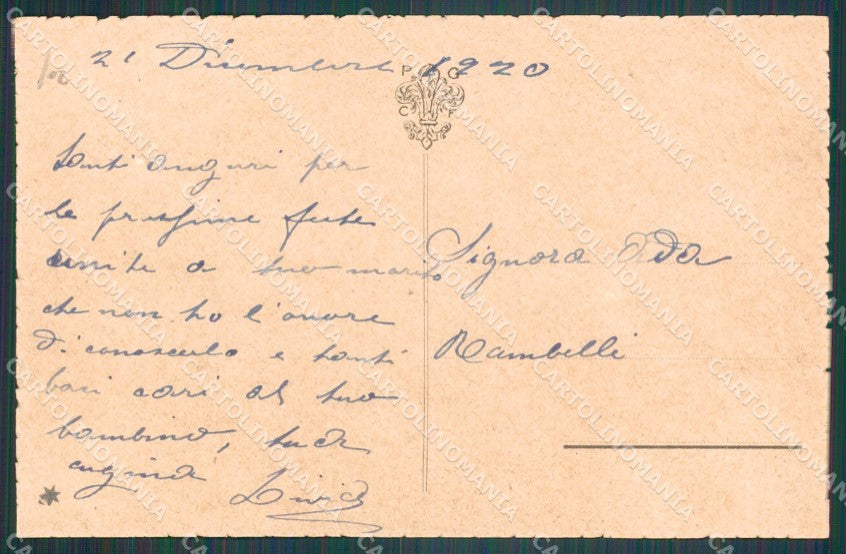 21 Dicembre 1920
P G
C F
Tanti auguri per
le prossime feste
unite a tuo marito
che non ho l'onore
di conoscerlo e tanti
baci cari al tuo
bambino, tua
cugina Livia
Signora Ada
Rambelli
CARTOLINOMANIA